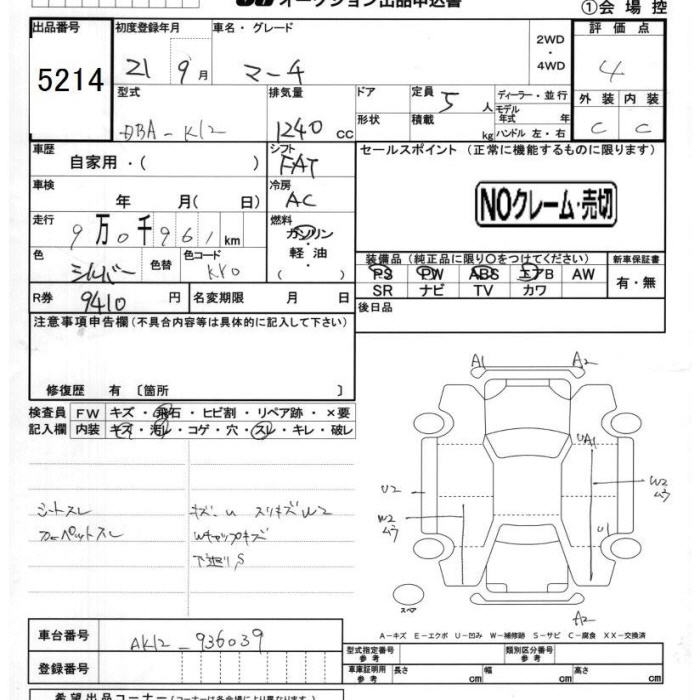 オークション出品申込書
①会場控
出品番号
5214
初度登録年月
21 9月
車名・グレード
マーチ
2WD
・
4WD
評価点
4
外装 内装
C C
型式
DBA-K12
排気量
1240cc
ドア
形状
定員 5人
積載 kg
ディーラー・並行
モデル年式 年
ハンドル 左・右
車歴
自家用・( )
シフト
FAT
セールスポイント (正常に機能するものに限ります)
NOクレーム・売切
車検
年 月( 日)
冷房
AC
走行
9万0千961km
燃料
ガソリン
・
軽油
( )
色
シルバー
色替
色コード
KY0
装備品(純正品に限り○をつけてください)
PS PW ABS エアB AW
SR ナビ TV カワ
新車保証書
有・無
R券 9410円
名変期限 月 日
後日品
注意事項申告欄(不具合内容等は具体的に記入して下さい)
修復歴 有〔箇所 〕
検査員記入欄
FW キズ・飛石・ヒビ割・リペア跡・×要
内装 キズ・汚れ・コゲ・穴・スレ・キレ・破レ
シートスレ
カーペットスレ
キズ・U スリキズW2
Wキャップキズ
下廻りS
A1 A2
UA1
U2
W2
ムラ
W2
ムラ
U1
スペア
A2
A-キズ E-エクボ U-凹み W-補修跡 S-サビ C-腐食 XX-交換済
車台番号
AK12-936039
登録番号
型式指定番号 参考
類別区分番号 参考
車庫証明用 参考
長さ cm
幅 cm
高さ cm
希望出品コーナー(コーナーは各会場により異なります)